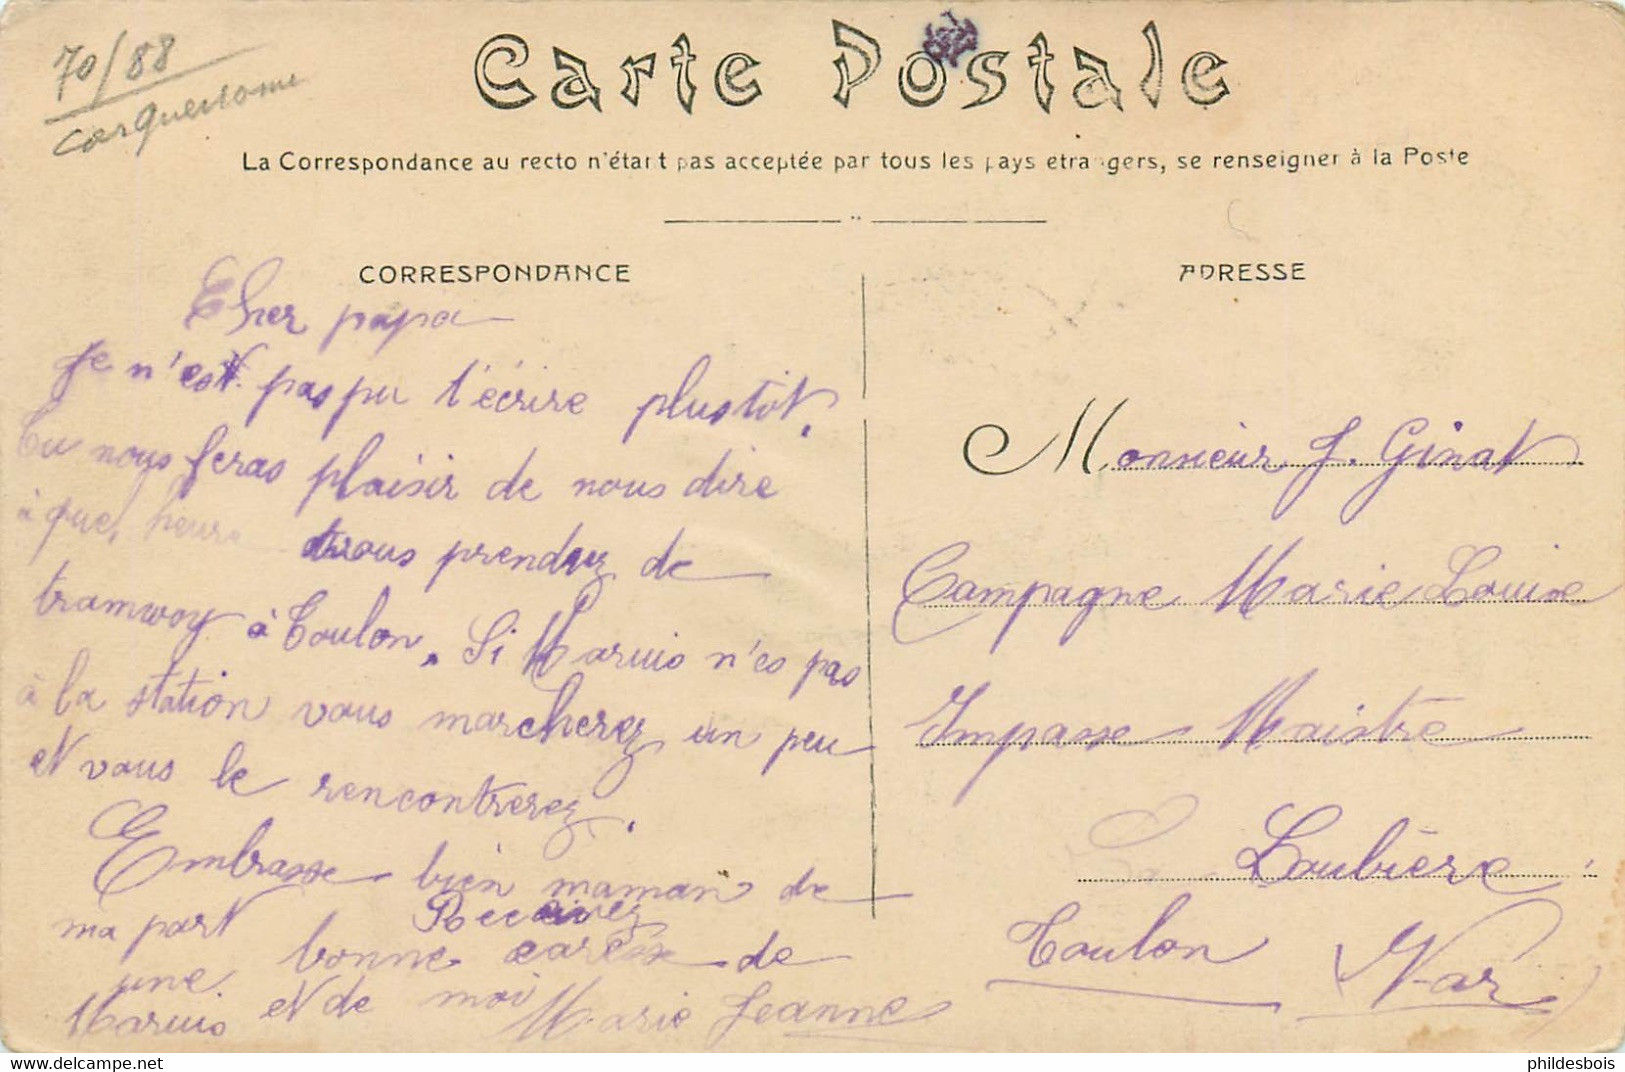 70/88
Carqueiranne
Carte Postale
La Correspondance au recto n'étant pas acceptée par tous les pays etrangers, se renseigner à la Poste
CORRESPONDANCE
Cher papa
Je n'est pas pu t'écrire plustôt.
Tu nous feras plaisir de nous dire
à quel heure vous prendrez de
tramway à Toulon. Si Marius n'es pas
à la station vous marcherez un peu
et vous le rencontrerez.
Embrasse bien maman de
ma part Recevez
une bonne caresse de
Marius et de moi Marie Jeanne
ADRESSE
Monsieur J. Ginat
Campagne Marie Louise
Impasse Maistre
La Loubière
Toulon (Var)
phildesbois